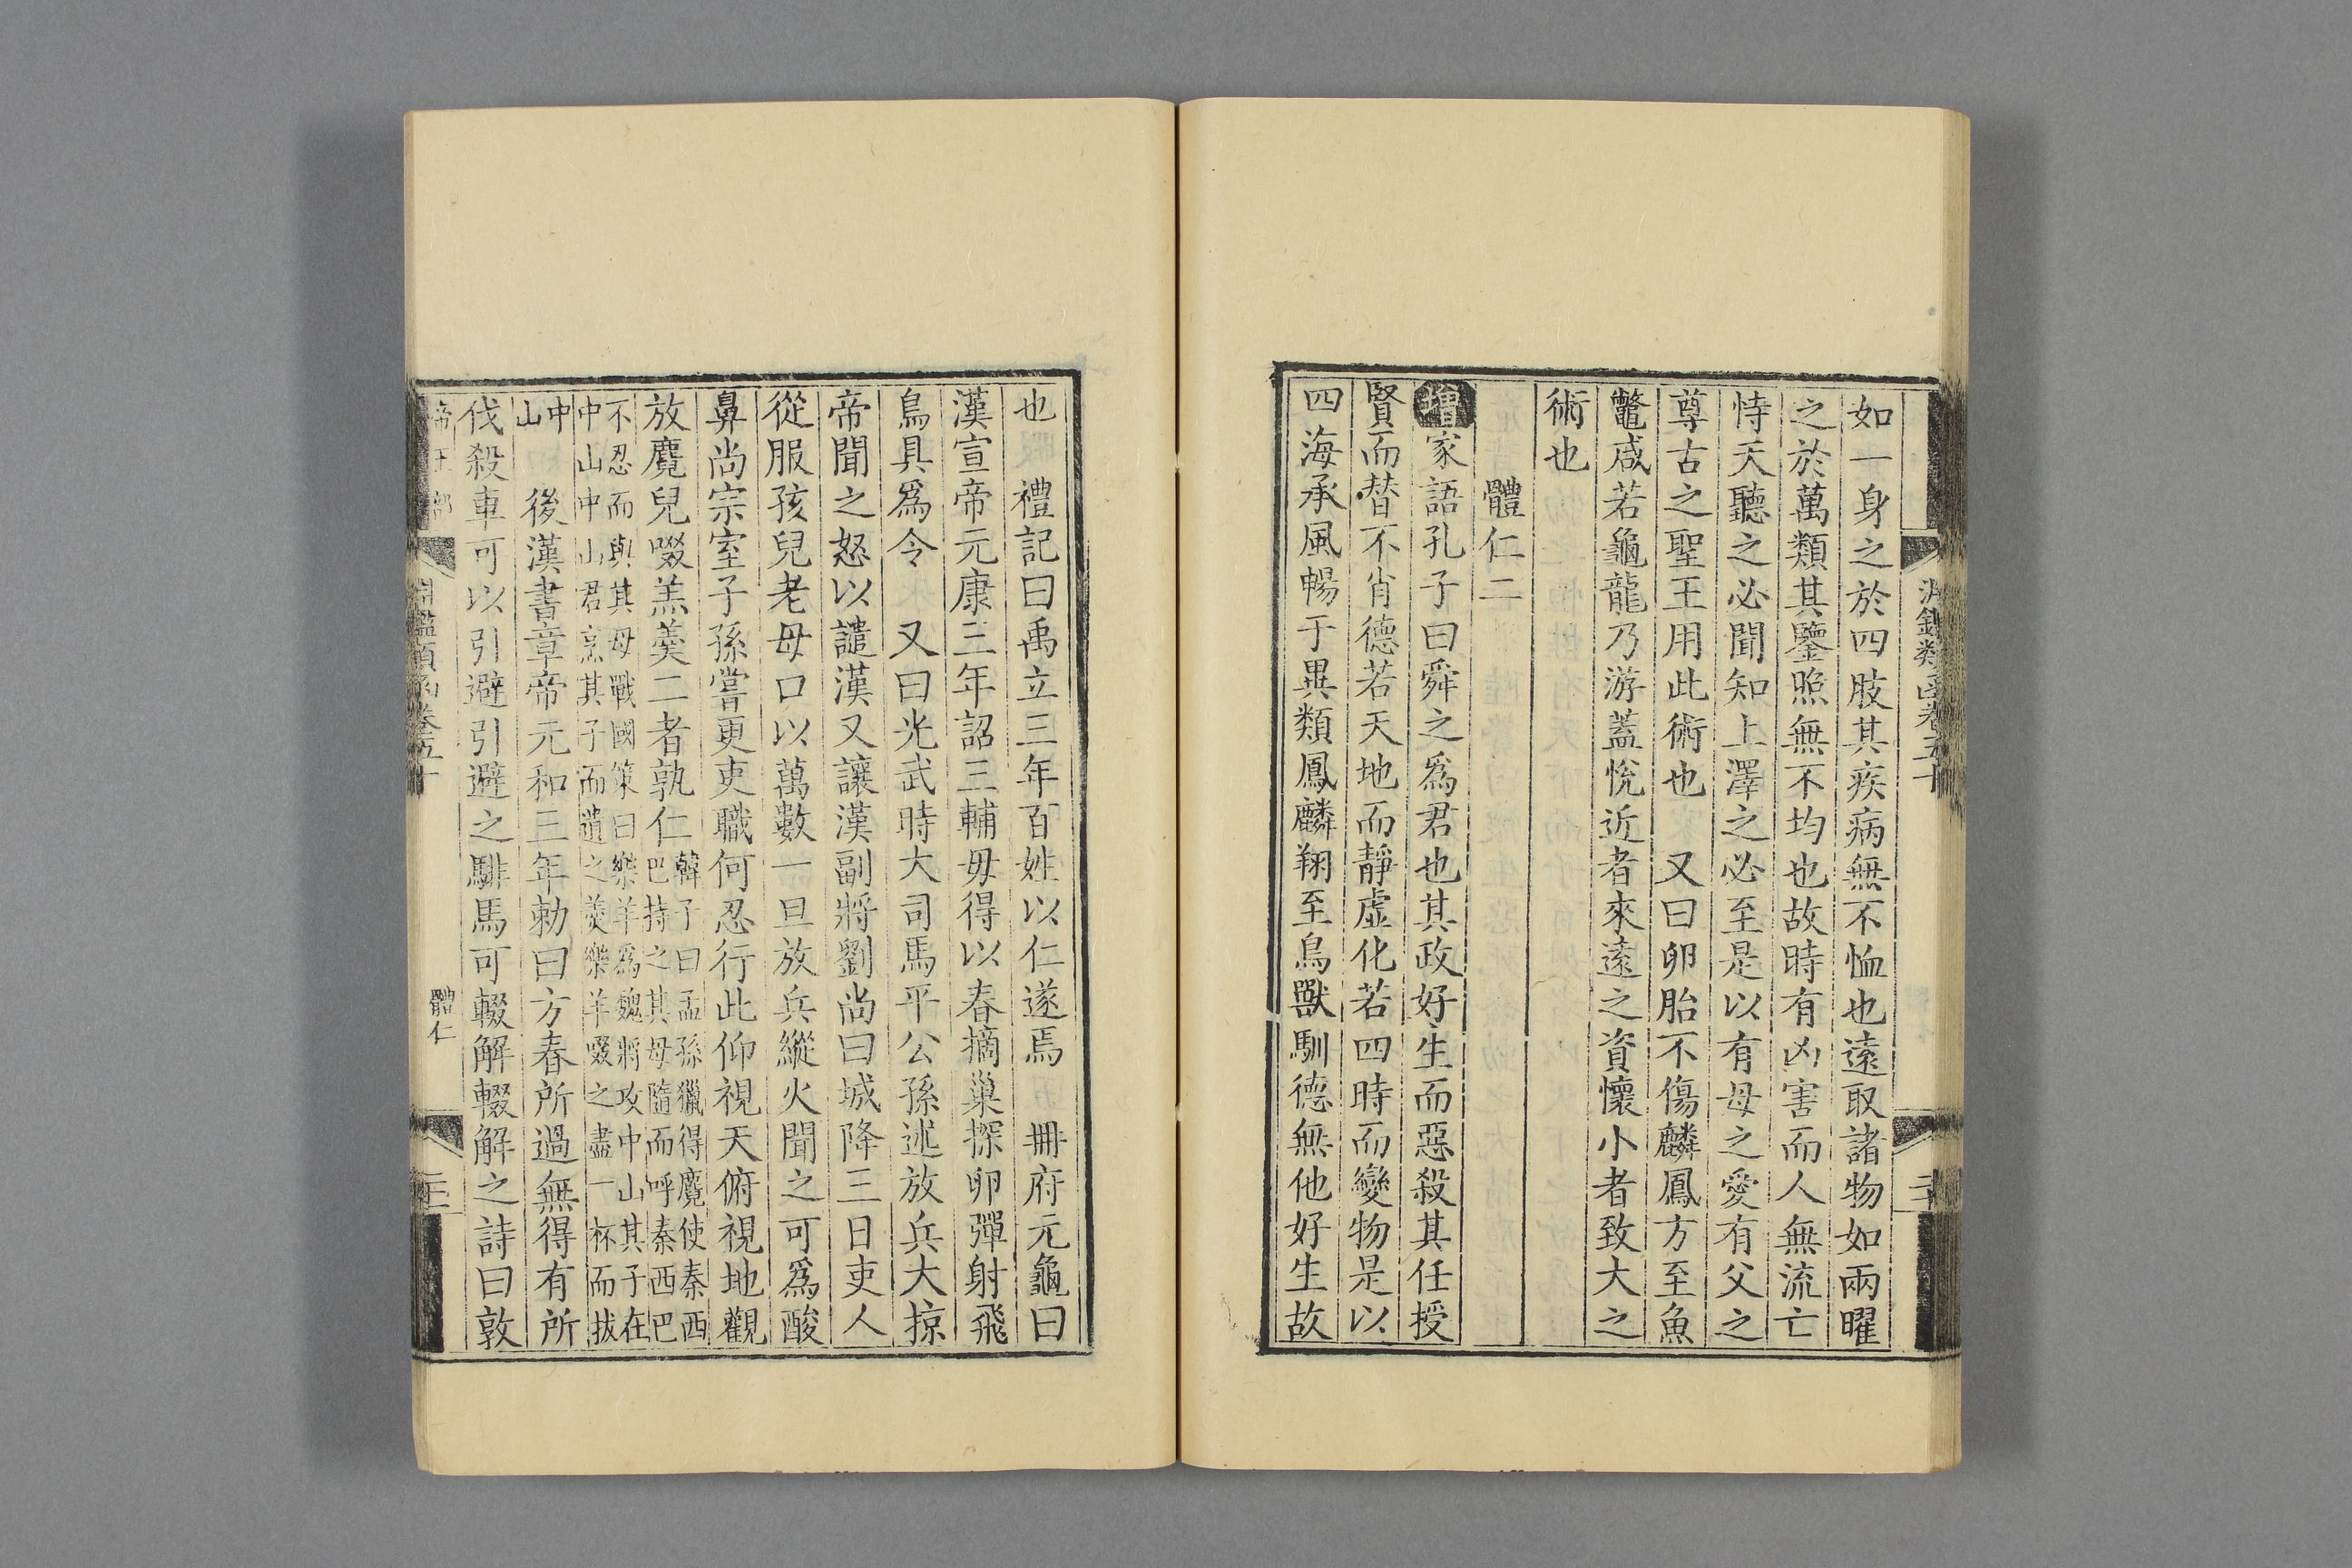 淵鑑類函卷五十
如一身之於四肢其疾病無不恤也遠取諸物如兩曜
之於萬類其鑒照無不均也故時有凶害而人無流亡
恃天聽之必聞知上澤之必至是以有母之愛有父之
尊古之聖王用此術也　又曰卵胎不傷麟鳳方至魚
鼈咸若龜龍乃游蓋悅近者來遠之資懷小者致大之
術也
體仁二
增家語孔子曰舜之爲君也其政好生而惡殺其任授
賢而替不肖德若天地而靜虛化若四時而變物是以
四海承風暢于異類鳳麟翔至鳥獸馴德無他好生故
也　禮記曰禹立三年百姓以仁遂焉　冊府元龜曰
漢宣帝元康三年詔三輔毋得以春摘巢探卵彈射飛
鳥具爲令　又曰光武時大司馬平公孫述放兵大掠
帝聞之怒以譴漢又讓漢副將劉尚曰城降三日吏人
從服孩兒老母口以萬數一旦放兵縱火聞之可爲酸
鼻尚宗室子孫嘗更吏職何忍行此仰視天俯視地觀
放麑兒啜羔羹二者孰仁韓子曰孟孫獵得麑使秦西
巴持之其母隨而呼秦西巴
不忍而與其母戰國策曰樂羊爲魏將攻中山其子在
中山中山君烹其子而遺之羹樂羊啜之盡一杯而拔
中山　後漢書章帝元和三年勑曰方春所過無得有所
伐殺車可以引避引避之騑馬可輟解輟解之詩曰敦
帝王部　淵鑑類函卷五十　體仁　三